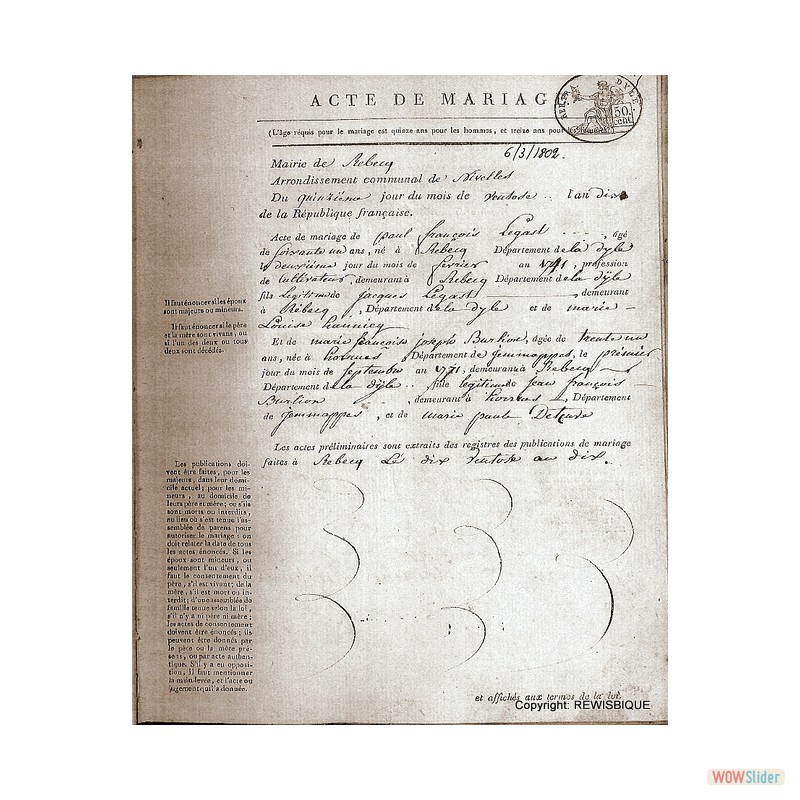 ACTE DE MARIAG
DYLE.
50.
cent
(L'âge réquis pour le mariage est quinze ans pour les hommes, et treize ans pour
6/3/1802.
Mairie de Rebecq
Arrondissement communal de Nivelles
Du quinzième jour du mois de ventose .. l'an dix
de la République française.
Acte de mariage de paul françois Legast ...., âgé
de soixante un ans, né à Rebecq Département de la dyle
le deuxième jour du mois de février an 1741, profession
de Cultivateur, demeurant à Rebecq Département de la dyle
fils Legitime de jacques Legast, demeurant
à Rebecq, Département de la dyle et de marie -
Louise hannicq
Et de marie françoise joseph Burlion, âgée de trente un
ans, née à hornues, Département de jemmappes, le premier
jour du mois de septembre an 1771, demeurant à Rebecq
Département de la dyle .., fille legitime de jean françois -
Burlion , demeurant à hornues, Département
de jemmappes, et de marie paule
Les actes préliminaires sont extraits des registres des publications de mariage
faites à Rebecq Le dix ventose an dix.
Il faut énoncer si les époux
sont majeurs ou mineurs.
Il faut énoncer si le père
et la mère sont vivans, ou
si l'un des deux ou tous
deux sont décédés.
Les publications doi-
vent être faites, pour les
majeurs, dans leur domi-
cile actuel; pour les mi-
neurs, au domicile de
leurs père et mère; ou s'ils
sont morts ou interdits,
au lieu où s'est tenue l'as-
semblée de parens pour
autoriser le mariage: on
doit relater la date de tous
les actes énoncés. Si les
époux sont mineurs, ou
seulement l'un d'eux, il
faut le consentement du
père, s'il est vivant; de la
mère, s'il est mort ou in-
terdit; d'une assemblée de
famille tenue selon la loi,
s'il n'y a ni père ni mère;
les actes de consentement
doivent être énoncés; ils
peuvent être donnés par
le père ou la mère pré-
sens, ou par acte authen-
tique. S'il y a eu opposi-
tion, il faut mentionner
la main-levée, et l'acte ou
jugement qui l'a donnée.
et affichés aux termes de la loi.
Copyright: REWISBIQUE
WOWSlider